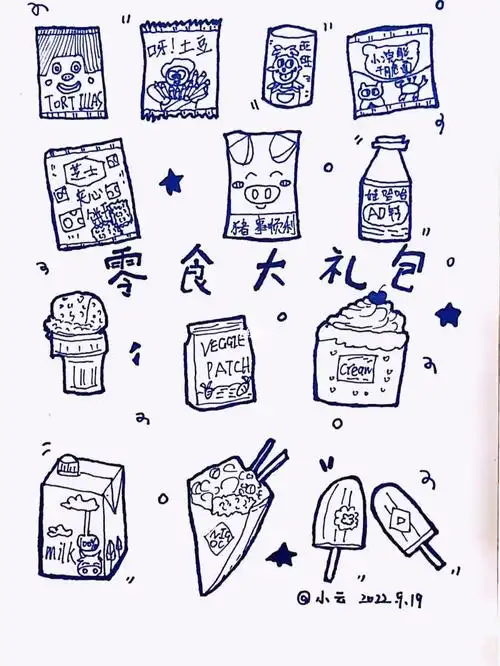 TORTILLAS
呀!土豆
旺旺
小浣熊
干脆面
芝士
夹心
饼
猪事顺利
娃哈哈
AD钙
零食大礼包
VEGGIE
PATCH
Cream
milk
@小云 2022.9.19